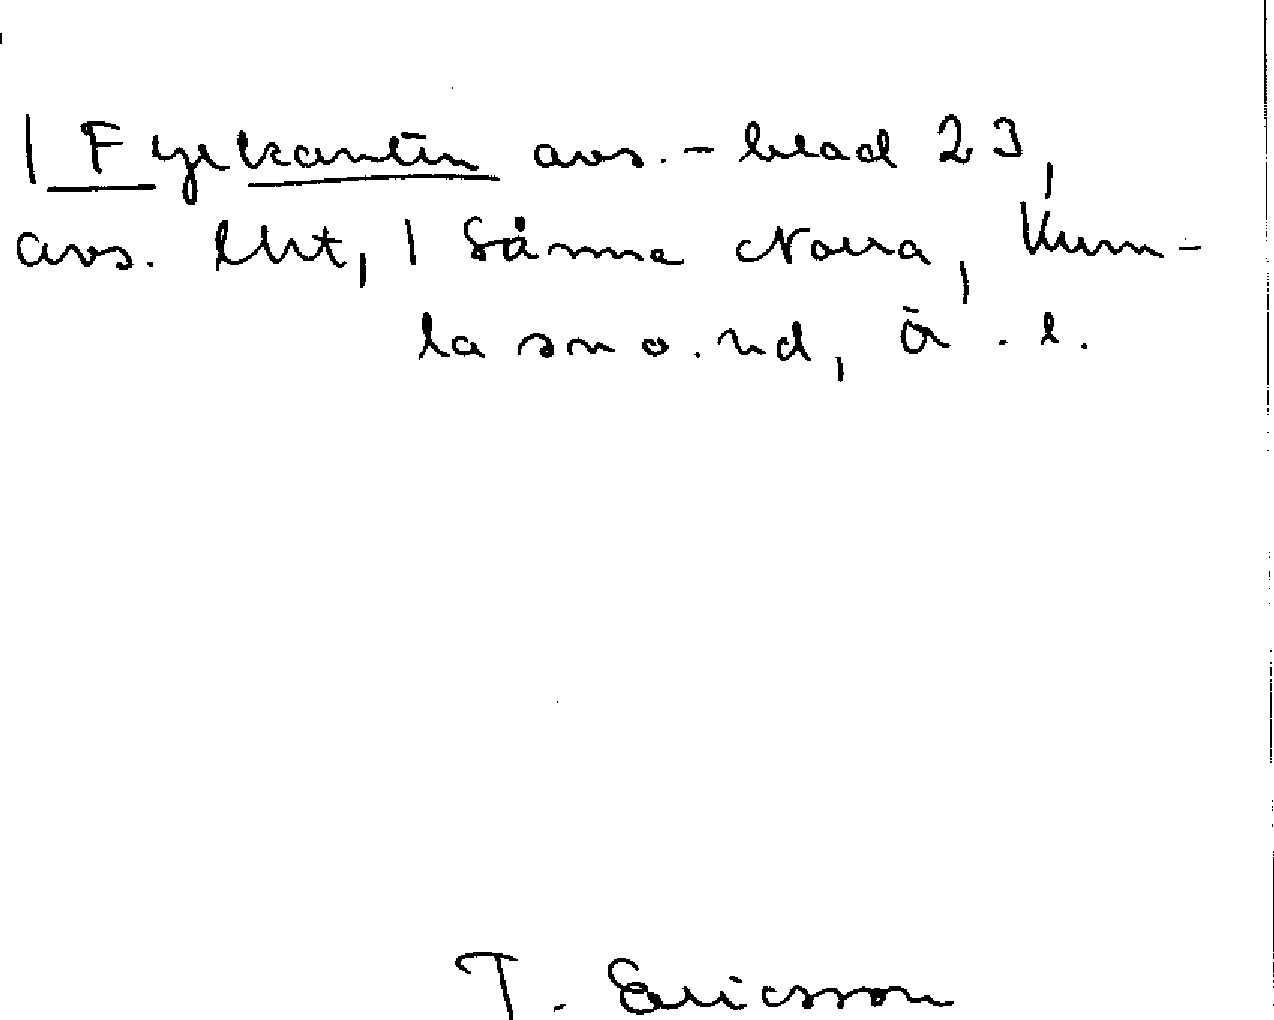 | Fyrkanten avs. - blad 23,
avs. Eht, | Sånna Norra, Kum-
la sn o. hd, Ör. l.
T. Ericsson